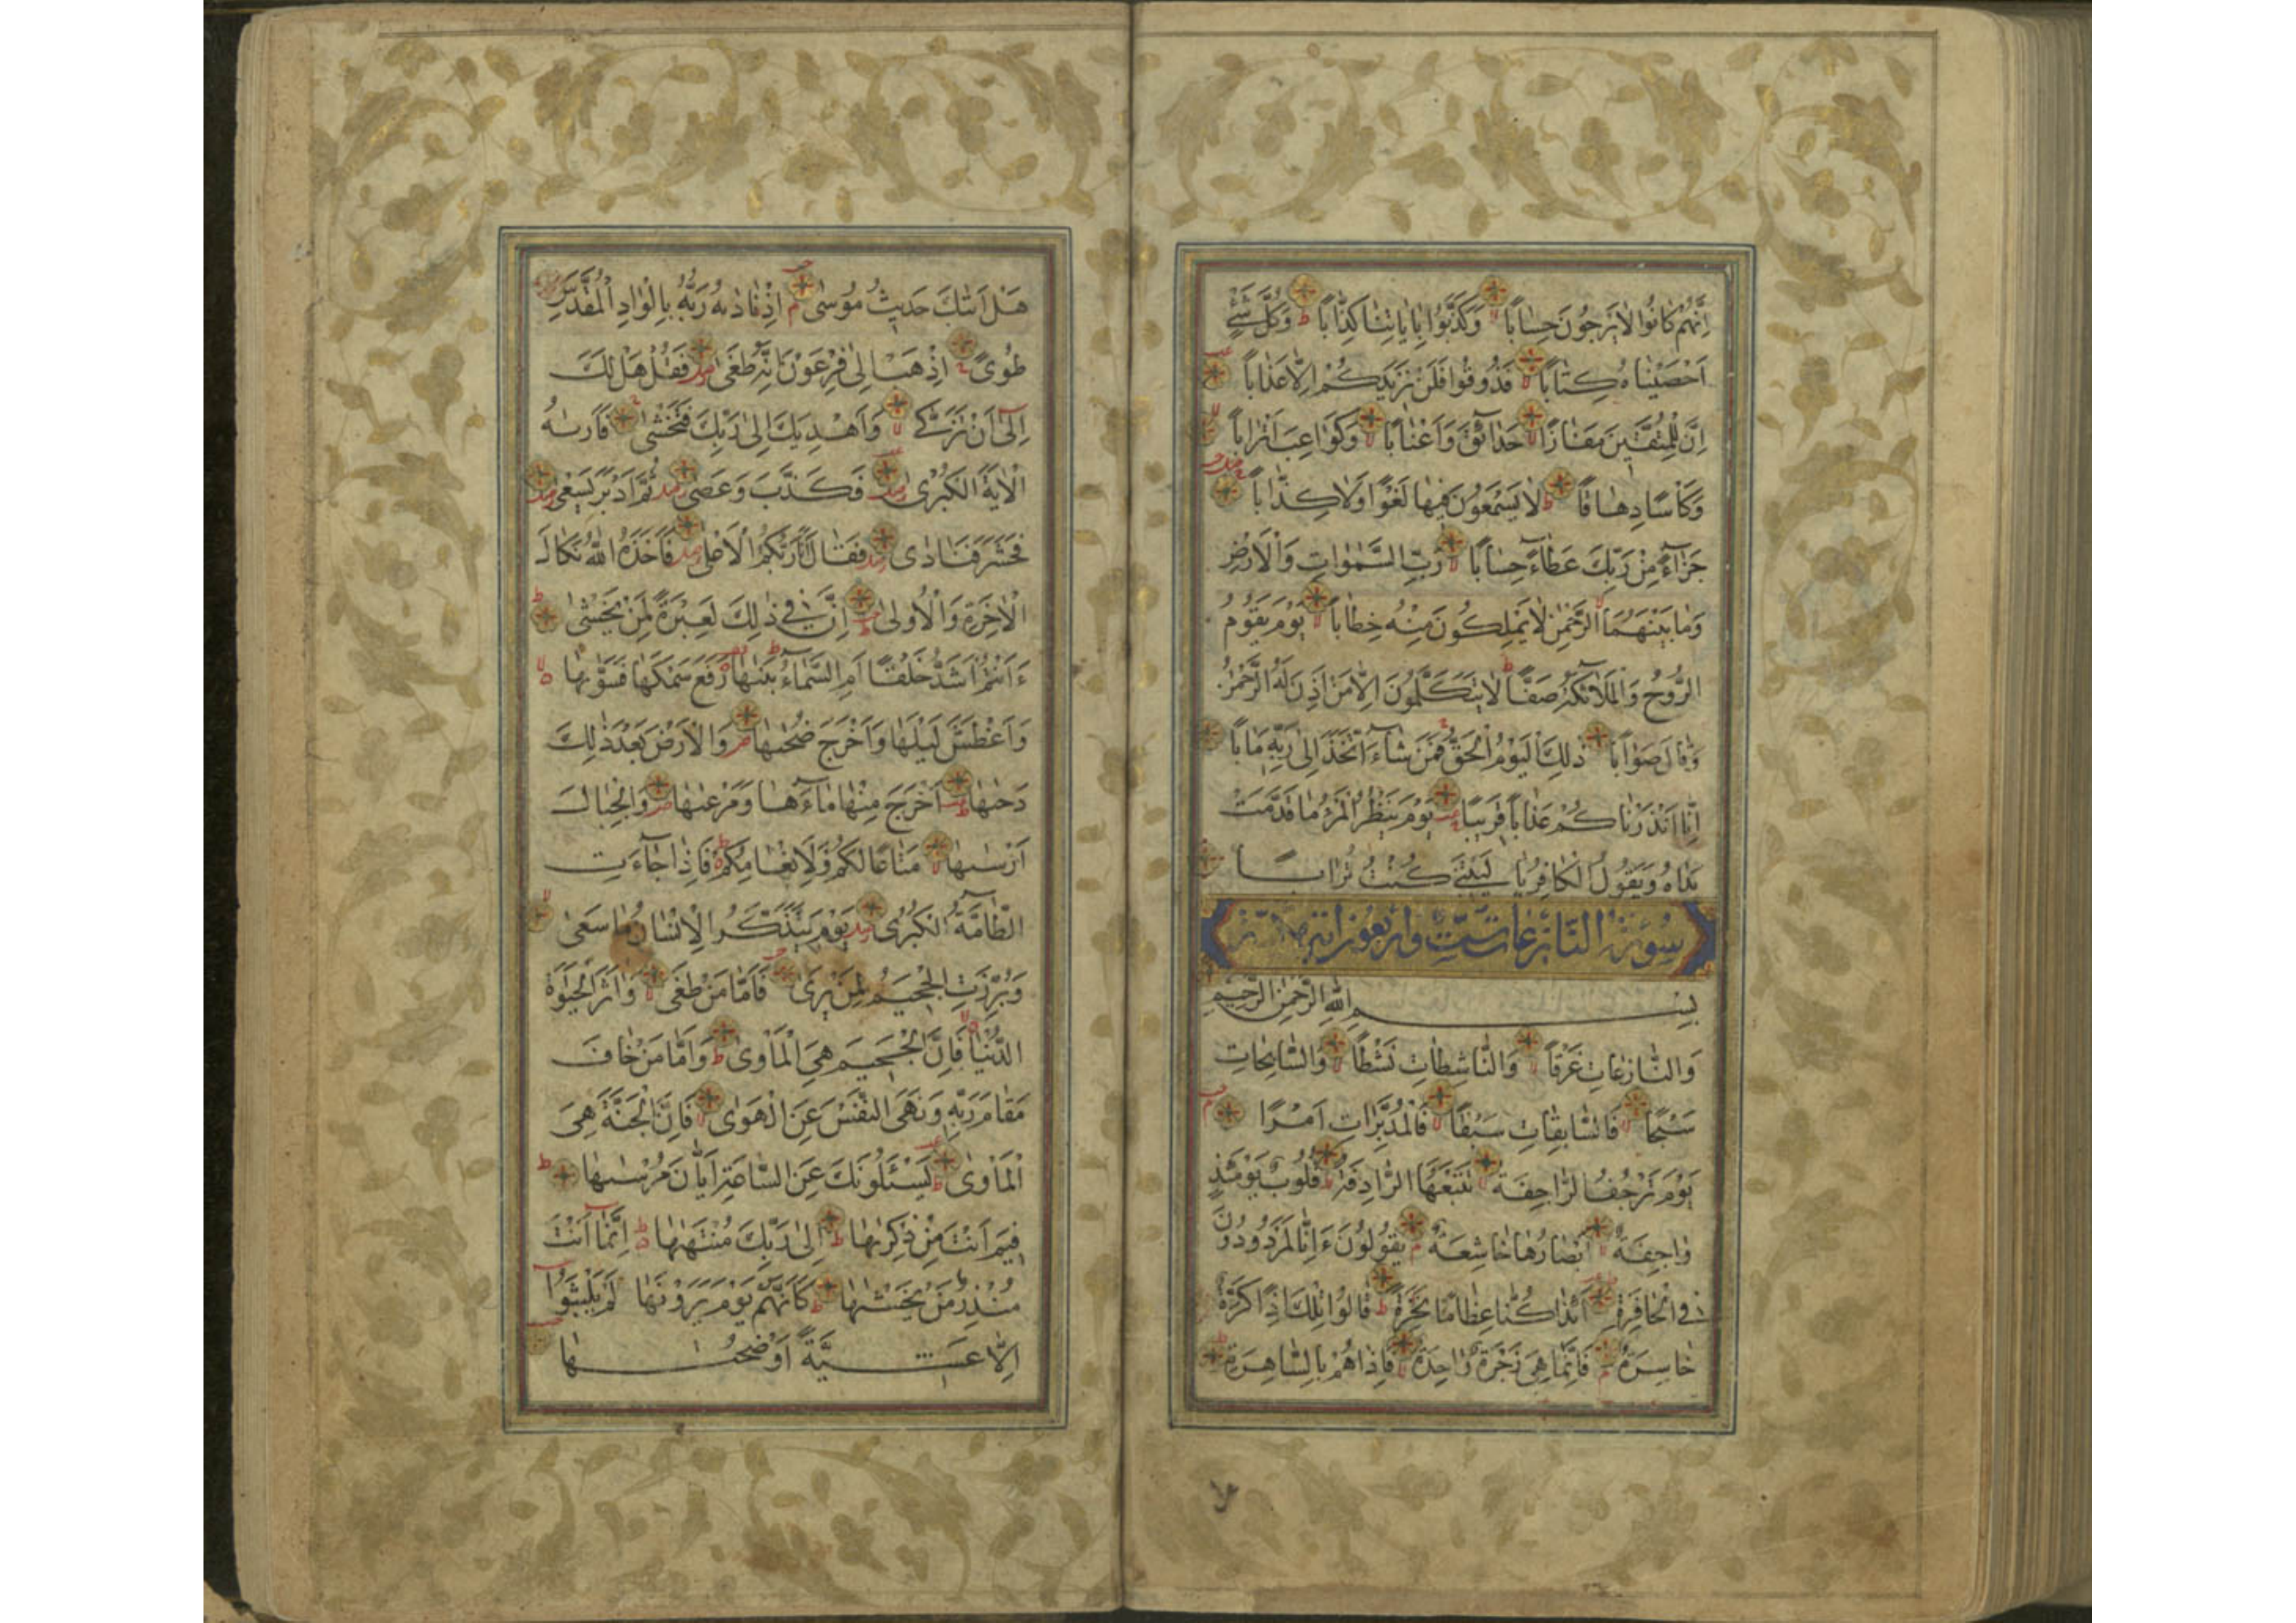 اِنَّهُمْ كَانُوا لَا يَرْجُونَ حِسَابًا وَكَذَّبُوا بِاٰيَاتِنَا كِذَّابًا وَكُلَّ شَيْءٍ
اَحْصَيْنَاهُ كِتَابًا فَذُوقُوا فَلَنْ نَزِيدَكُمْ اِلَّا عَذَابًا
اِنَّ لِلْمُتَّقِينَ مَفَازًا حَدَآئِقَ وَاَعْنَابًا وَكَوَاعِبَ اَتْرَابًا
وَكَاْسًا دِهَاقًا لَا يَسْمَعُونَ فِيهَا لَغْوًا وَلَا كِذَّابًا
جَزَآءً مِنْ رَبِّكَ عَطَآءً حِسَابًا رَبِّ السَّمٰوَاتِ وَالْاَرْضِ
وَمَا بَيْنَهُمَا الرَّحْمٰنِ لَا يَمْلِكُونَ مِنْهُ خِطَابًا يَوْمَ يَقُومُ
الرُّوحُ وَالْمَلَآئِكَةُ صَفًّا لَا يَتَكَلَّمُونَ اِلَّا مَنْ اَذِنَ لَهُ الرَّحْمٰنُ
وَقَالَ صَوَابًا ذٰلِكَ الْيَوْمُ الْحَقُّ فَمَنْ شَآءَ اتَّخَذَ اِلٰى رَبِّهِ مَاٰبًا
اِنَّا اَنْذَرْنَاكُمْ عَذَابًا قَرِيبًا يَوْمَ يَنْظُرُ الْمَرْءُ مَا قَدَّمَتْ
يَدَاهُ وَيَقُولُ الْكَافِرُ يَا لَيْتَنِي كُنْتُ تُرَابًا
سورة النازعات ست واربعون اية
بِسْمِ اللهِ الرَّحْمٰنِ الرَّحِيمِ
وَالنَّازِعَاتِ غَرْقًا وَالنَّاشِطَاتِ نَشْطًا وَالسَّابِحَاتِ
سَبْحًا فَالسَّابِقَاتِ سَبْقًا فَالْمُدَبِّرَاتِ اَمْرًا
يَوْمَ تَرْجُفُ الرَّاجِفَةُ تَتْبَعُهَا الرَّادِفَةُ قُلُوبٌ يَوْمَئِذٍ
وَاجِفَةٌ اَبْصَارُهَا خَاشِعَةٌ يَقُولُونَ ءَاِنَّا لَمَرْدُودُونَ
فِي الْحَافِرَةِ ءَاِذَا كُنَّا عِظَامًا نَخِرَةً قَالُوا تِلْكَ اِذًا كَرَّةٌ
خَاسِرَةٌ فَاِنَّمَا هِيَ زَجْرَةٌ وَاحِدَةٌ فَاِذَا هُمْ بِالسَّاهِرَةِ
هَلْ اَتٰىكَ حَدِيثُ مُوسٰى اِذْ نَادٰىهُ رَبُّهُ بِالْوَادِ الْمُقَدَّسِ
طُوًى اِذْهَبْ اِلٰى فِرْعَوْنَ اِنَّهُ طَغٰى فَقُلْ هَلْ لَكَ
اِلٰى اَنْ تَزَكّٰى وَاَهْدِيَكَ اِلٰى رَبِّكَ فَتَخْشٰى فَاَرٰىهُ
الْاٰيَةَ الْكُبْرٰى فَكَذَّبَ وَعَصٰى ثُمَّ اَدْبَرَ يَسْعٰى
فَحَشَرَ فَنَادٰى فَقَالَ اَنَا رَبُّكُمُ الْاَعْلٰى فَاَخَذَهُ اللهُ نَكَالَ
الْاٰخِرَةِ وَالْاُولٰى اِنَّ فِي ذٰلِكَ لَعِبْرَةً لِمَنْ يَخْشٰى
ءَاَنْتُمْ اَشَدُّ خَلْقًا اَمِ السَّمَآءُ بَنٰىهَا رَفَعَ سَمْكَهَا فَسَوّٰىهَا
وَاَغْطَشَ لَيْلَهَا وَاَخْرَجَ ضُحٰىهَا وَالْاَرْضَ بَعْدَ ذٰلِكَ
دَحٰىهَا اَخْرَجَ مِنْهَا مَآءَهَا وَمَرْعٰىهَا وَالْجِبَالَ
اَرْسٰىهَا مَتَاعًا لَكُمْ وَلِاَنْعَامِكُمْ فَاِذَا جَآءَتِ
الطَّآمَّةُ الْكُبْرٰى يَوْمَ يَتَذَكَّرُ الْاِنْسَانُ مَا سَعٰى
وَبُرِّزَتِ الْجَحِيمُ لِمَنْ يَرٰى فَاَمَّا مَنْ طَغٰى وَاٰثَرَ الْحَيٰوةَ
الدُّنْيَا فَاِنَّ الْجَحِيمَ هِيَ الْمَاْوٰى وَاَمَّا مَنْ خَافَ
مَقَامَ رَبِّهِ وَنَهَى النَّفْسَ عَنِ الْهَوٰى فَاِنَّ الْجَنَّةَ هِيَ
الْمَاْوٰى يَسْئَلُونَكَ عَنِ السَّاعَةِ اَيَّانَ مُرْسٰىهَا
فِيمَ اَنْتَ مِنْ ذِكْرٰىهَا اِلٰى رَبِّكَ مُنْتَهٰىهَا اِنَّمَآ اَنْتَ
مُنْذِرُ مَنْ يَخْشٰىهَا كَاَنَّهُمْ يَوْمَ يَرَوْنَهَا لَمْ يَلْبَثُوٓا
اِلَّا عَشِيَّةً اَوْ ضُحٰىهَا